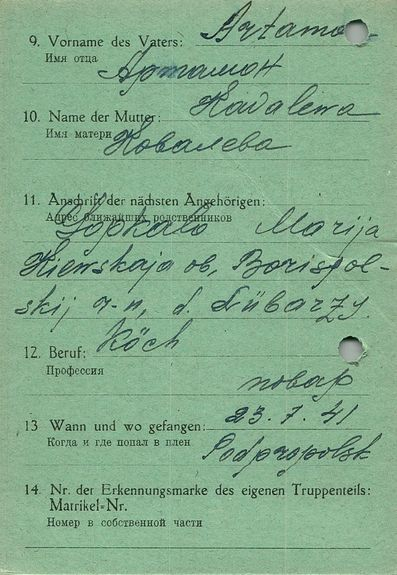 Artamo
9. Vorname des Vaters:
Имя отца
Артамон
Kawalewa
10. Name der Mutter:
Имя матери
Ковалева
11. Anschrift der nächsten Angehörigen:
Адрес ближайших родственников
Marija
Kiewskaja ob, Borispol-
skij r-n, d.
12. Beruf: Koch
Профессия
повар
13 Wann und wo gefangen: 23.7.41
Когда и где попал в плен
14. Nr. der Erkennungsmarke des eigenen Truppenteils:
Matrikel-Nr.
Номер в собственной части